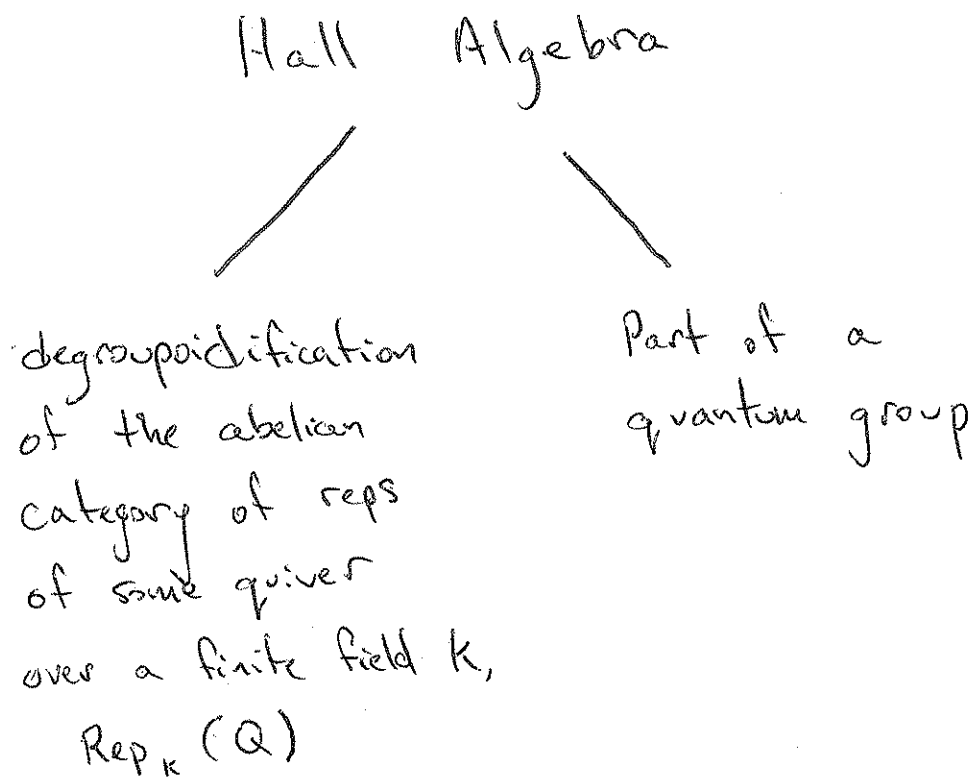 Hall Algebra
degroupoidification
of the abelian
category of reps
of some quiver
over a finite field k,
Rep_k (Q)
Part of a
quantum group